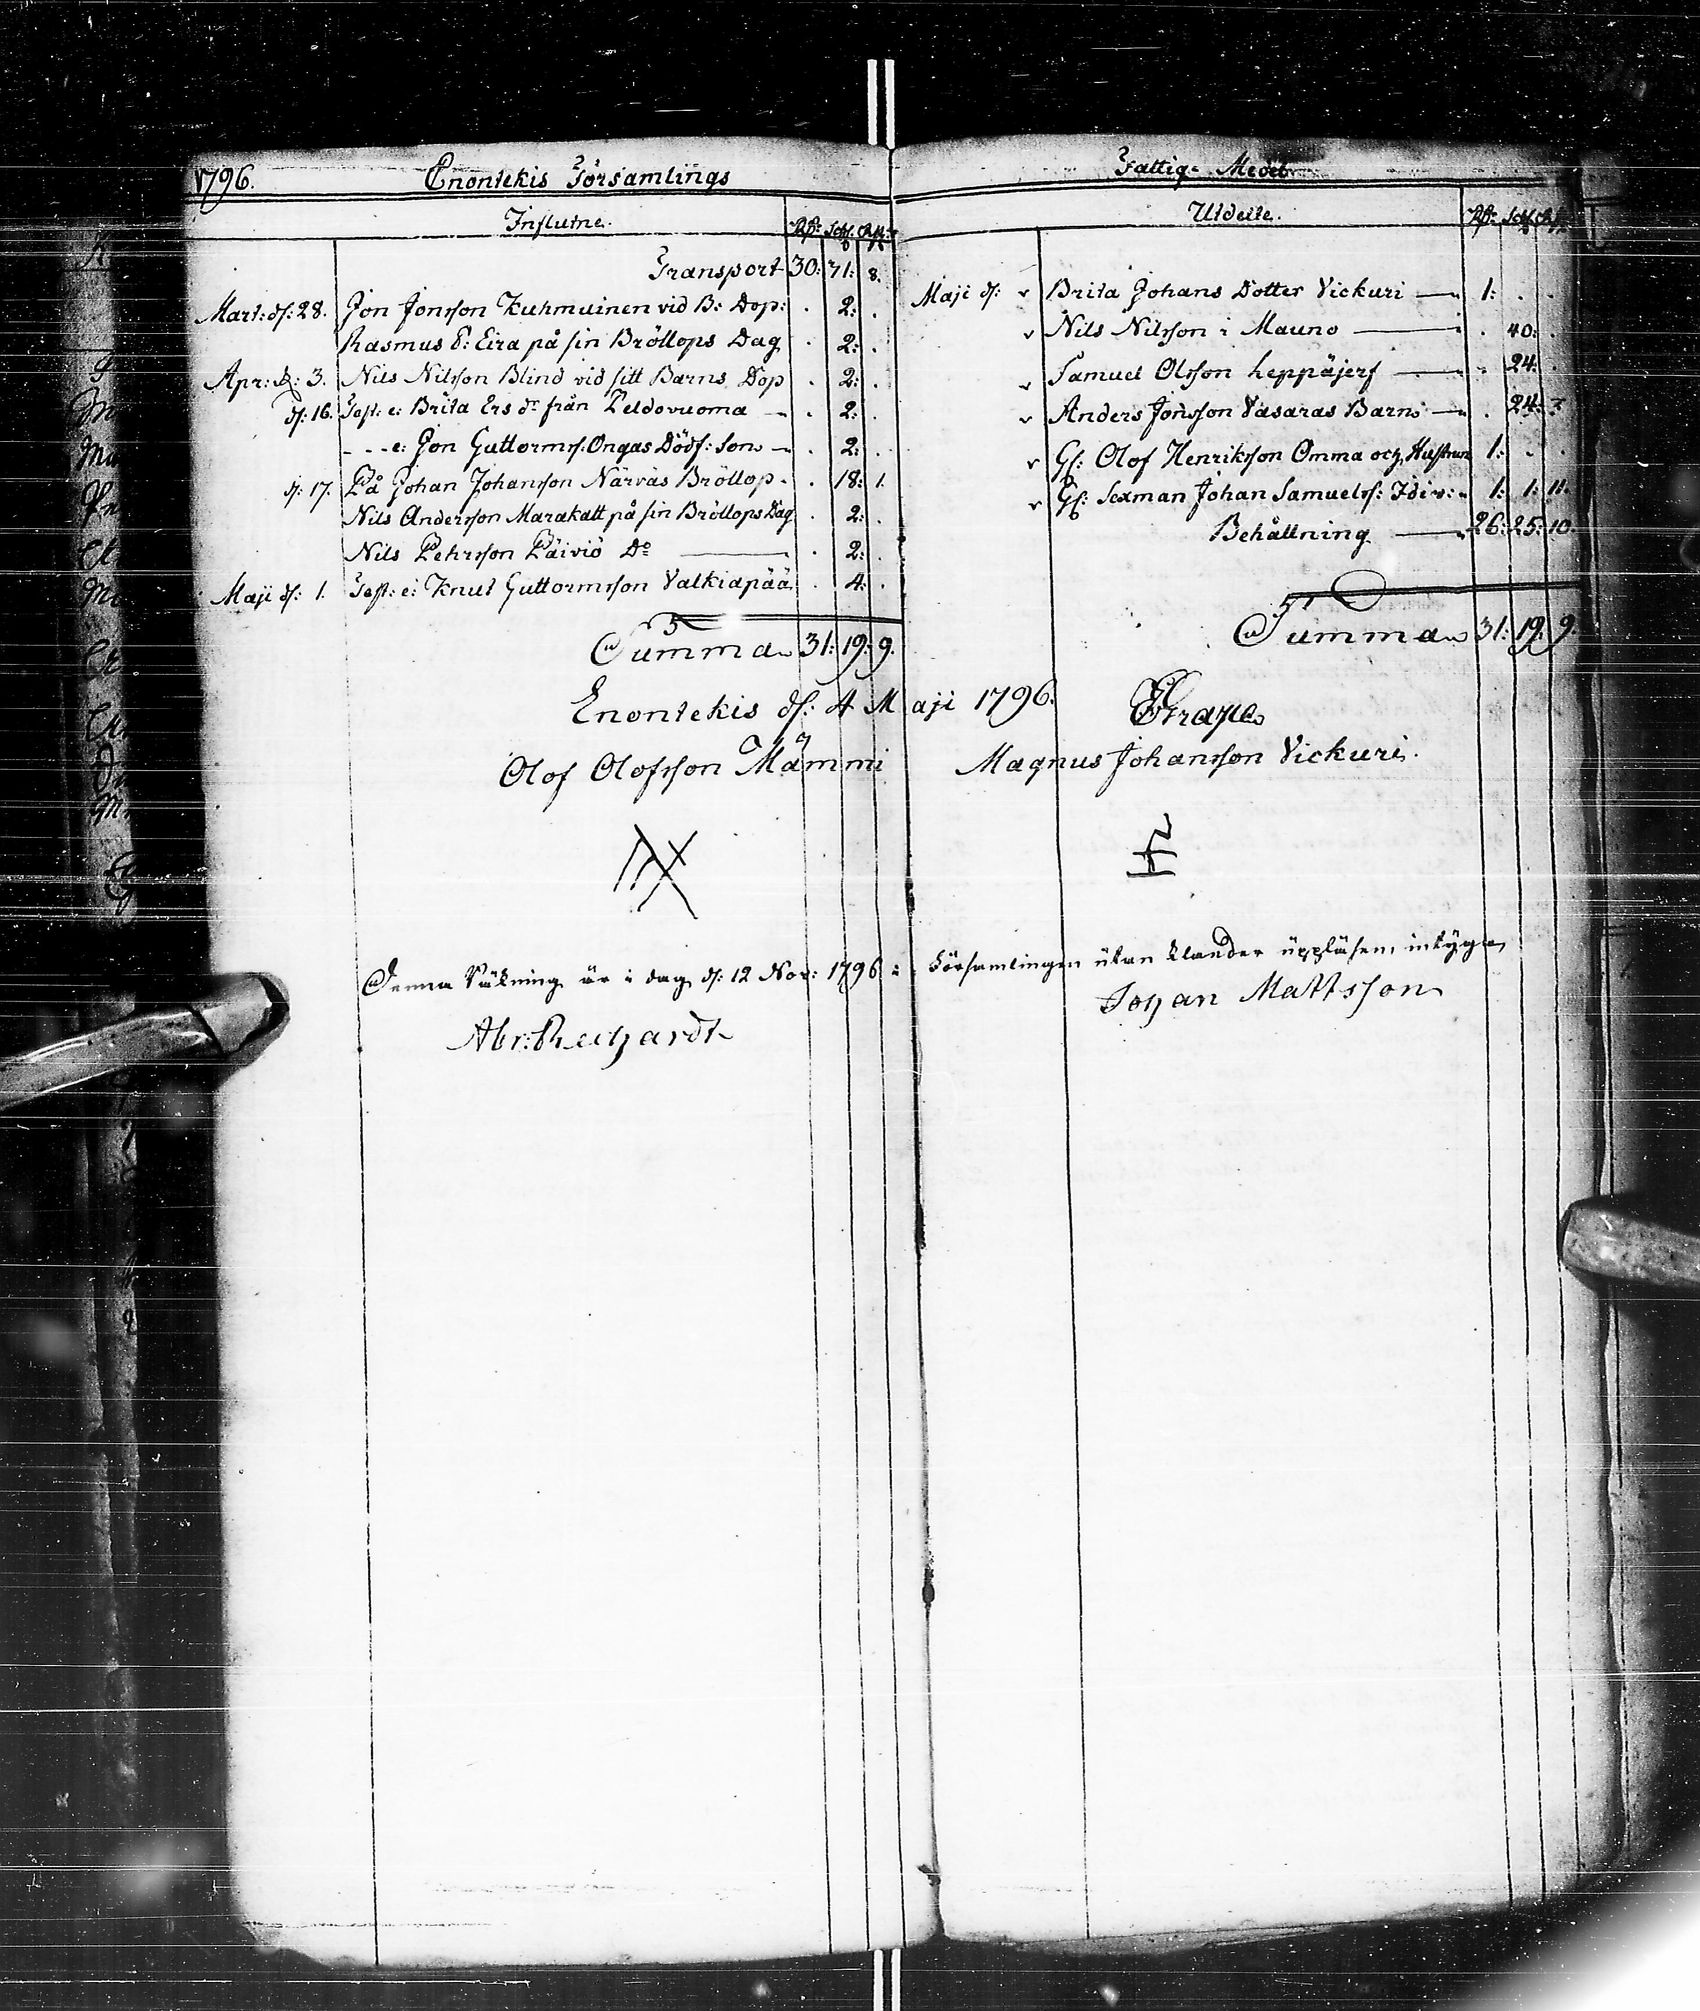 1796. Enontekis Församlings
Influtne. Rdr Schl. Rst:
Transport 30: 31: 8.
Mart: d: 28. Jon Jonsson Kuhmuinen vid B: Dop: . 2: .
Rasmus P: Eira på sin Bröllops Dag . 2: .
Apr: d: 3. Nils Nilsson Blind vid sitt Barns Dop . 2: .
d: 16. Test: e: Brita Ers dr från Peldovuoma . 2: .
- - - e: Jon Guttorms: Ongas Döds: Son . 2: .
d: 17. På Johan Johansson Närväs Bröllop . 18: 1.
Nils Andersson Marakatt på sin Bröllops Dag . 2: .
Nils Pehrsson Päiviö Do . 2: .
Maji d: 1. Test: e: Knut Guttormsson Valkiapää . 4: .
Summa 31: 19: 9.
Fattig-Medel
Utdeite. Rdr: Schl. Rst:
Maji d: v Brita Johans Dotter Vickuri 1: . .
v Nils Nilsson i Mauno . 40: .
v Samuel Olsson Leppäjerf . 24: .
v Anders Jonsson Vasaras Barn . 24:
v Gl: Olof Henrikson Omma och Hustru 1: . .
v Gl: Sexman Johan Samuels: 1: 1: 11.
Behållning 26: 25: 10.
Summa 31: 19: 9.
Enontekis d: 4 Maji 1796.
Olof Olofsson Mämmi Magnus Johansson Vickuri.
Denna Räkning är i dag d: 12 Nov: 1796 i Församlingen utan klander uppläsen, intyga
Johan Mattsson
Abr: Rechardt